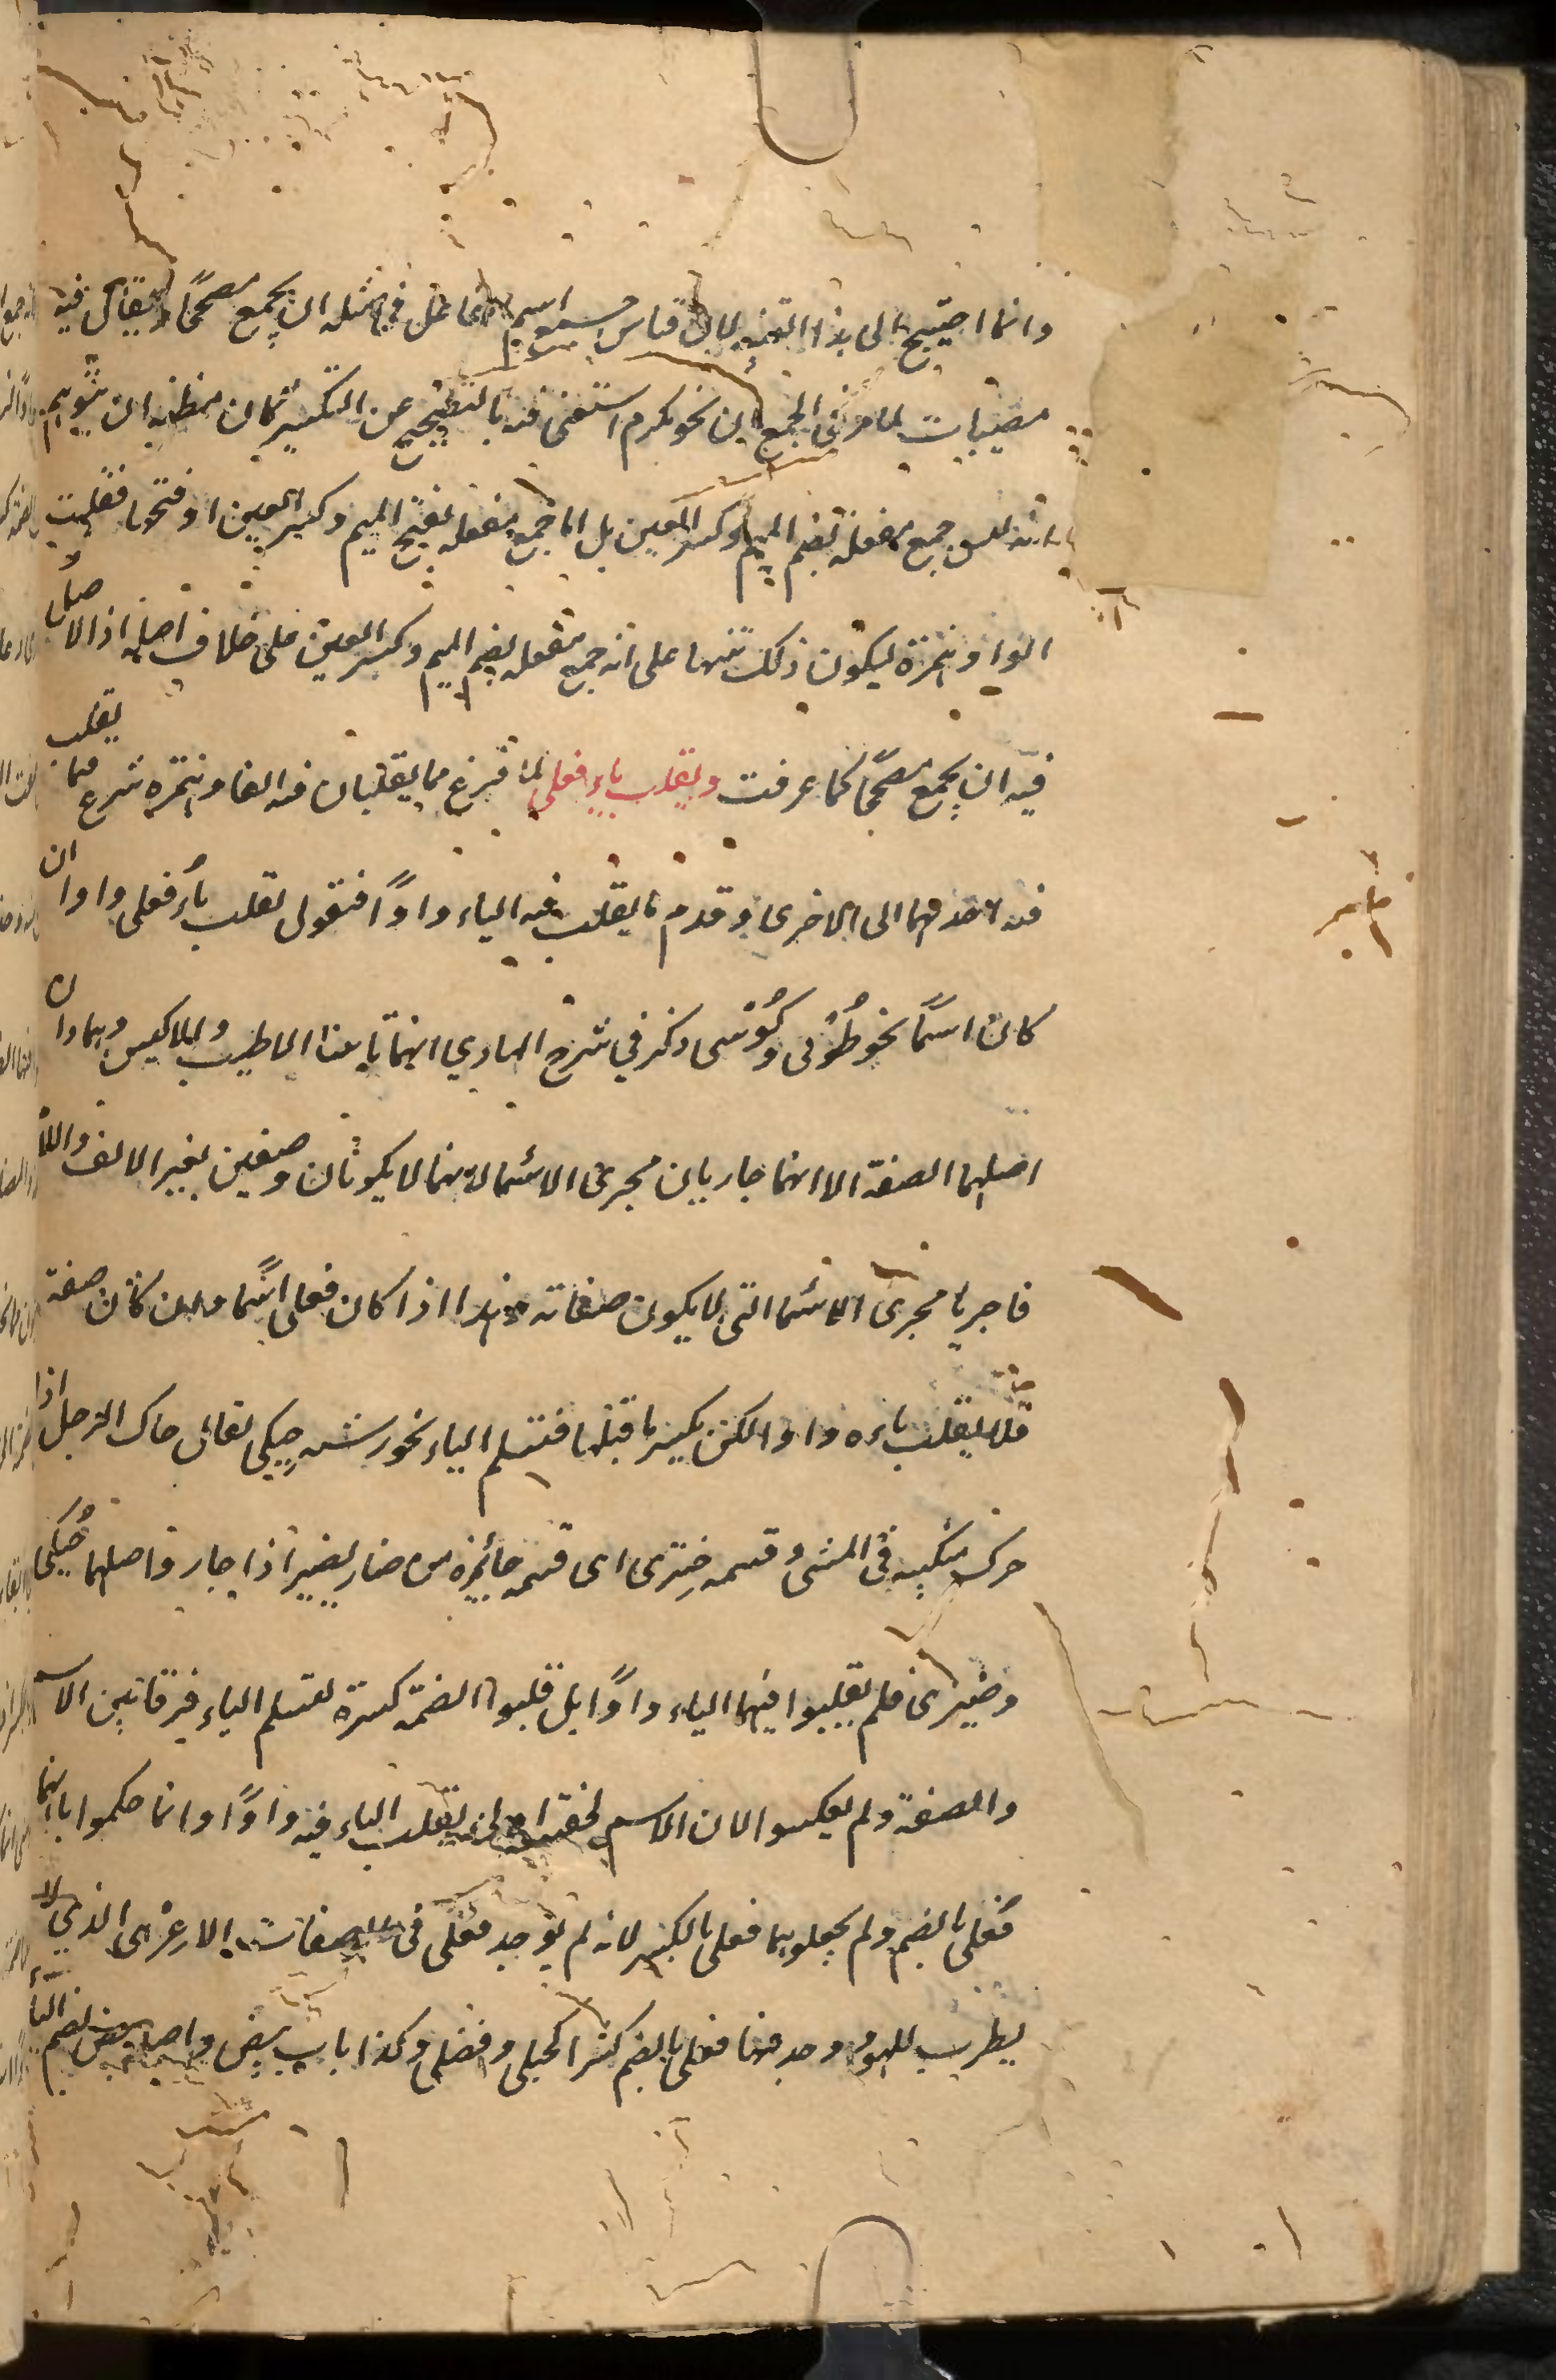 وانما احتيج الى هذا التنبيه لان قياس اسم الفاعل في مثله ان يجمع مصححا ويقال فيه
مصيبات لما مر في الجمع ان نحو مكرم استغنى فيه بالتصحيح عن التكسير فكان مظنة ان يتوهم
انه ليس جمع مفعلة بضم الميم وكسر العين بل انما جمع مفعلة بفتح الميم وكسر العين او فتحها فقلبت
الواو همزة ليكون ذلك تنبيها على انه جمع مفعلة بضم الميم وكسر العين على خلاف اصله اذ الاصل
فيه ان يجمع مصححا كما عرفت وتقلب ياء فعلى لما فرغ مما يقلبان فيه الفا وهمزة شرع فيما تقلب
فيه احدهما الى الاخرى وقدم ما يقلب فيه الياء واوًا فتقول تقلب ياء فعلى واوا ان
كان اسمًا نحو طُوْبى وكُوْسى ذكر في شرح الهادي انهما تانيثا الاطيب والاكيس وهما وان
اصلهما الصفة الا انهما جاريان مجرى الاسماء لانهما لا يكونان وصفين بغير الالف واللام
فاجريا مجرى الاسماء التي لا يكون صفات هذا اذا كان فعلى اسمًا وان كان صفة
فلا يقلب ياءه واوا لكن يكسر ما قبلها فتسلم الياء نحو مشية حِيكى يقال حاك الرجل اذا
حرك منكبيه في المشي وقسمة ضِيزى اى قسمة جائزة من ضاز يضيز اذا جار واصلهما حُيكى
وضُيزى فلم يقلبوا فيهما الياء واوًا بل قلبوا الضمة كسرة لتسلم الياء فرقا بين الاسم
والصفة ولم يعكسوا لان الاسم لخفته اولى بقلب الياء فيه واوًا وانما حكموا بانهما
فُعلى بالضم ولم يجعلوهما فعلى بالكسر لانه لم يوجد فعلى في الصفات الا عزهى الذي لا
يطرب للهو ووجد فيها فعلى بالضم كثيرا كحبلى وفضلى وكذا باب بيض واصله بيض بضم الباء